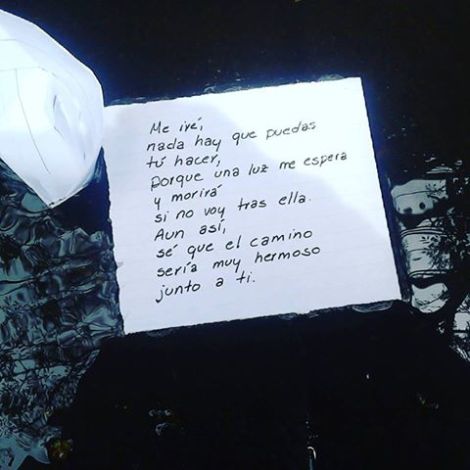 Me iré,
nada hay que puedas
tú hacer,
porque una luz me espera
y morirá
si no voy tras ella.
Aun así,
sé que el camino
sería muy hermoso
junto a ti.